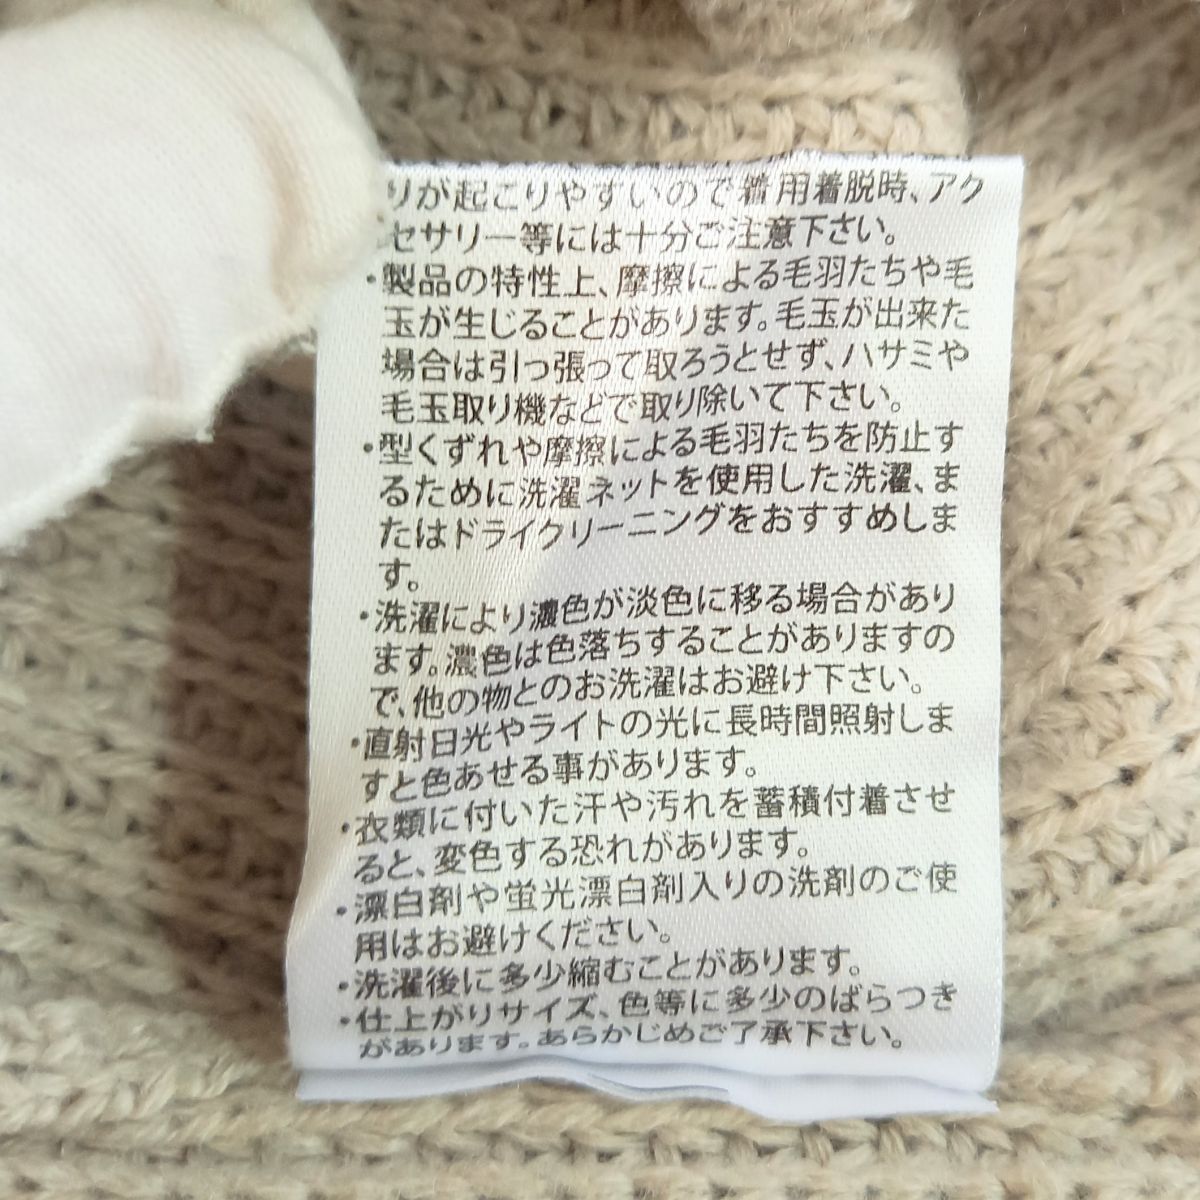 りが起こりやすいので着用着脱時、アク
セサリー等には十分ご注意下さい。
・製品の特性上、摩擦による毛羽たちや毛
玉が生じることがあります。毛玉が出来た
場合は引っ張って取ろうとせず、ハサミや
毛玉取り機などで取り除いて下さい。
・型くずれや摩擦による毛羽たちを防止す
るために洗濯ネットを使用した洗濯、ま
たはドライクリーニングをおすすめしま
す。
・洗濯により濃色が淡色に移る場合があり
ます。濃色は色落ちすることがありますの
で、他の物とのお洗濯はお避け下さい。
・直射日光やライトの光に長時間照射しま
すと色あせる事があります。
・衣類に付いた汗や汚れを蓄積付着させ
ると、変色する恐れがあります。
・漂白剤や蛍光漂白剤入りの洗剤のご使
用はお避けください。
・洗濯後に多少縮むことがあります。
・仕上がりサイズ、色等に多少のばらつき
があります。あらかじめご了承下さい。